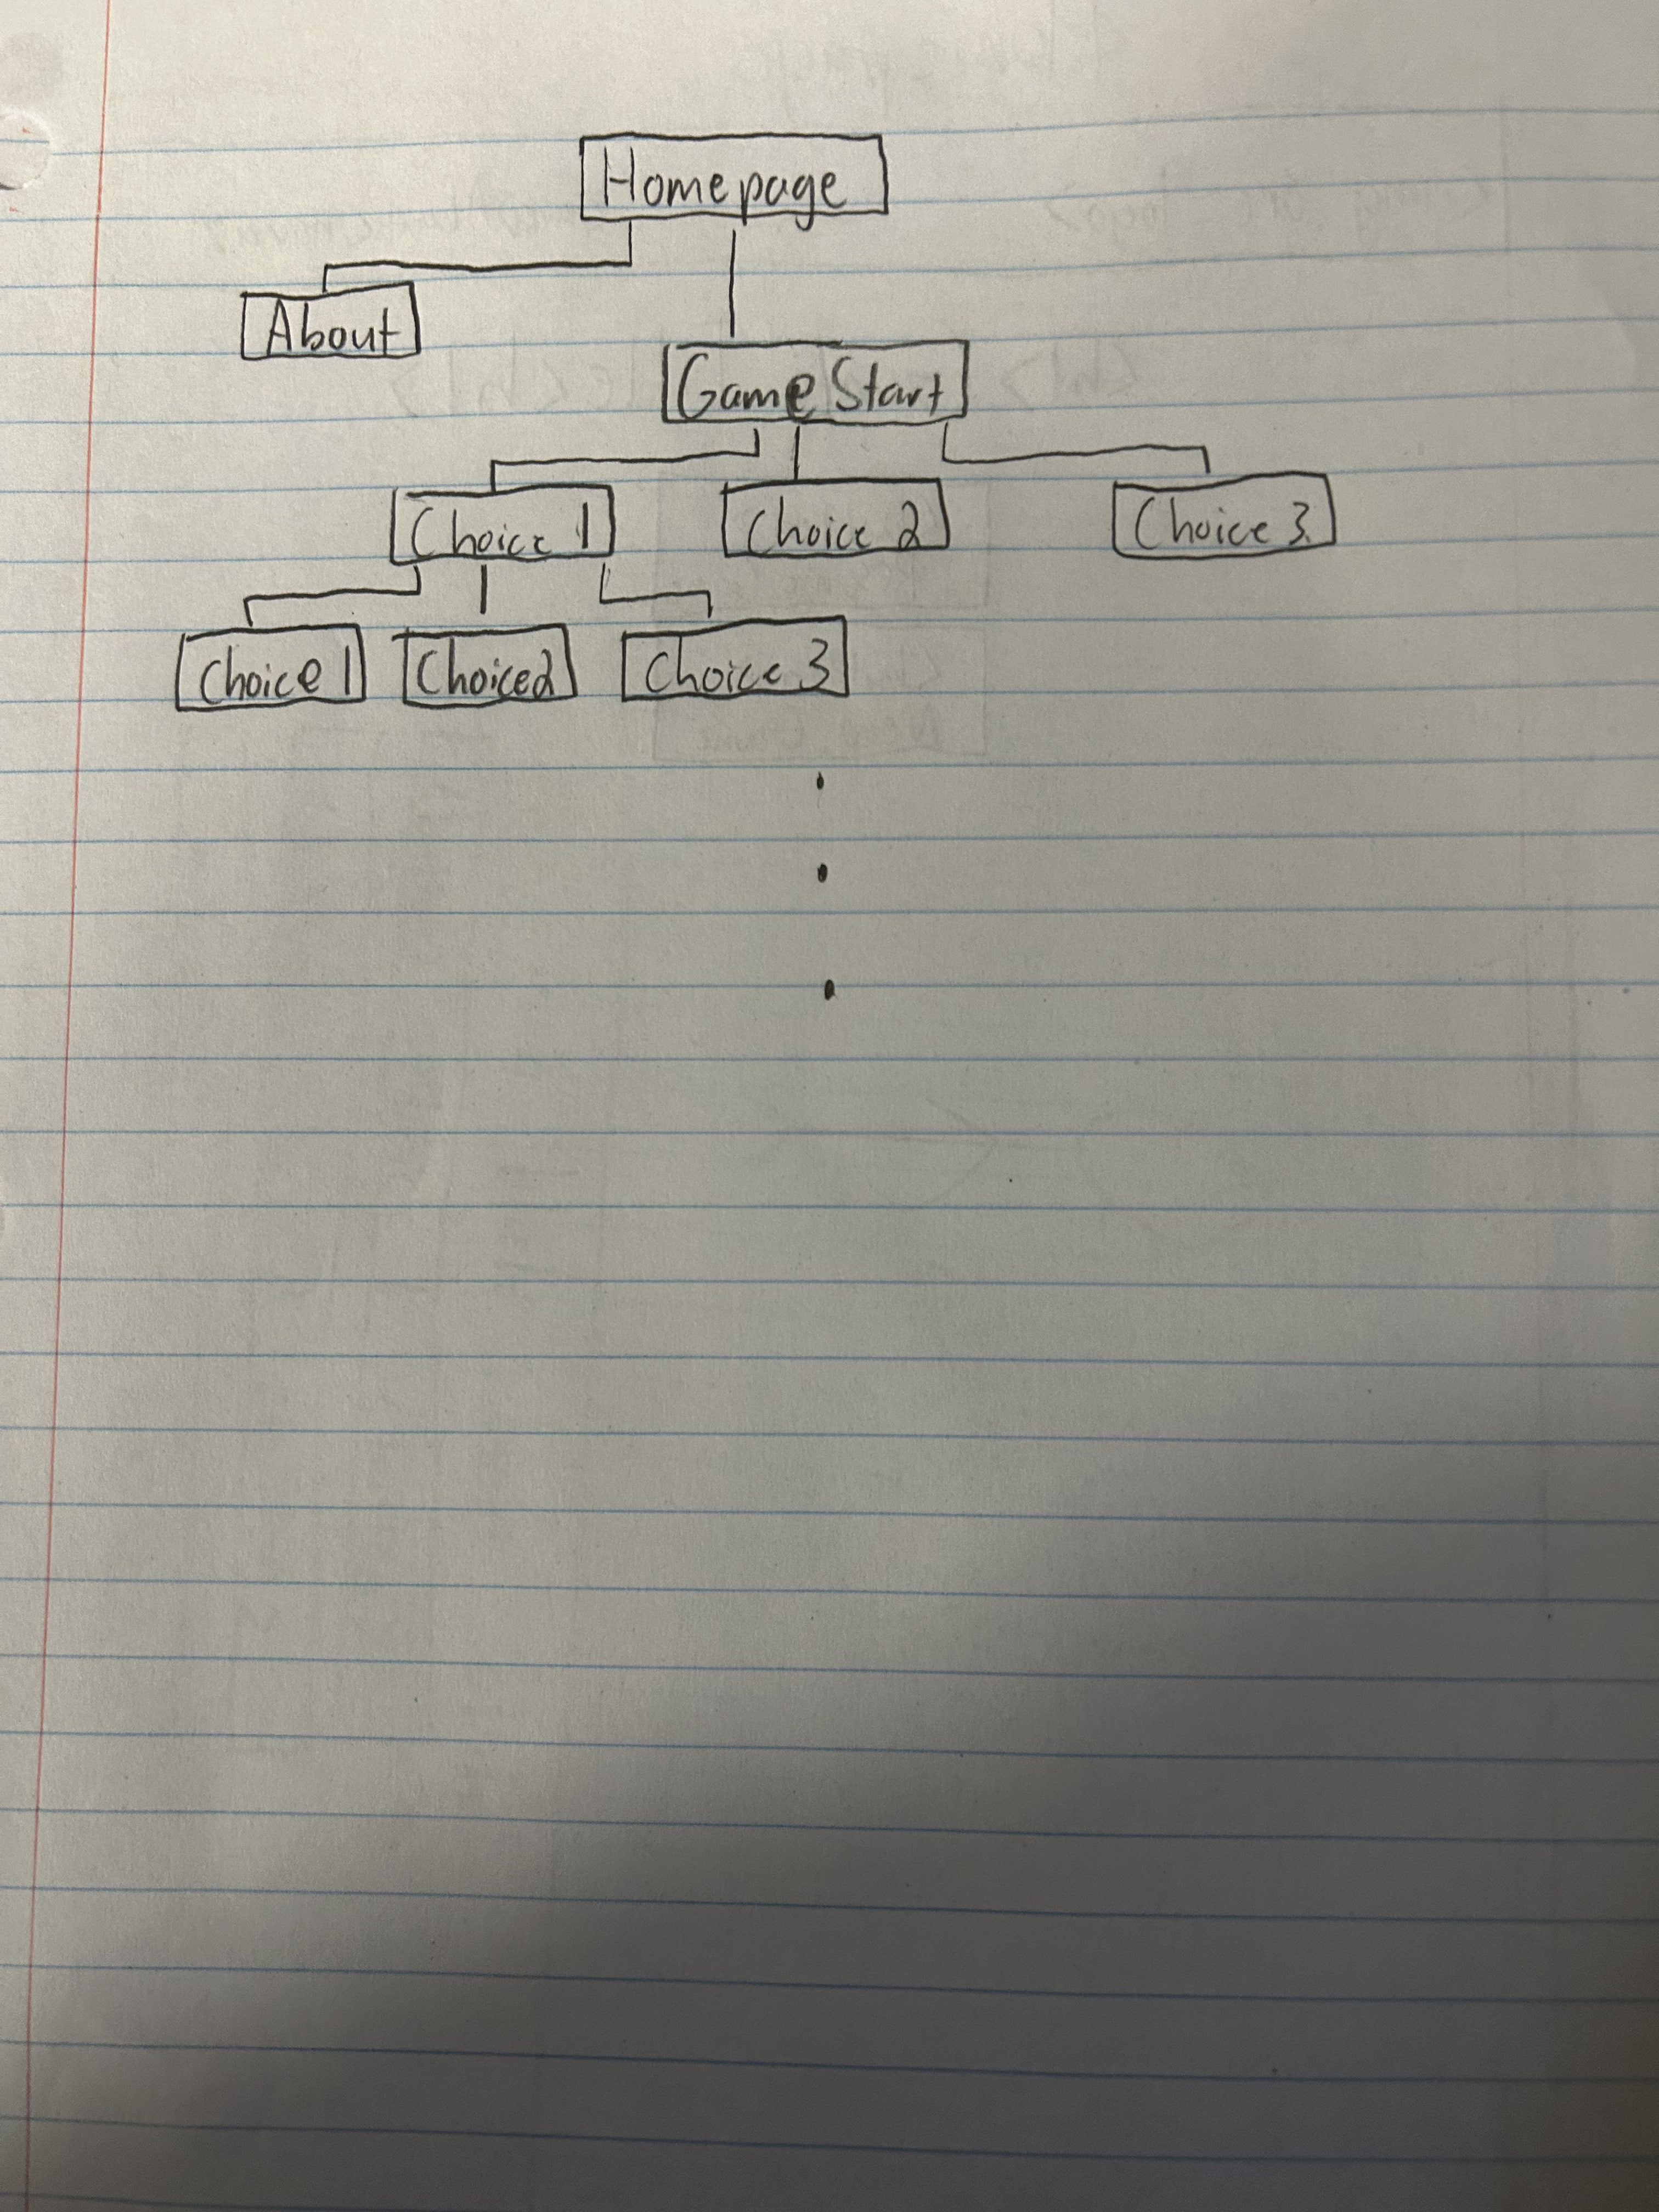 Homepage
About
Game Start
Choice 1
Choice 2
Choice 3
Choice 1
Choice2
Choice 3